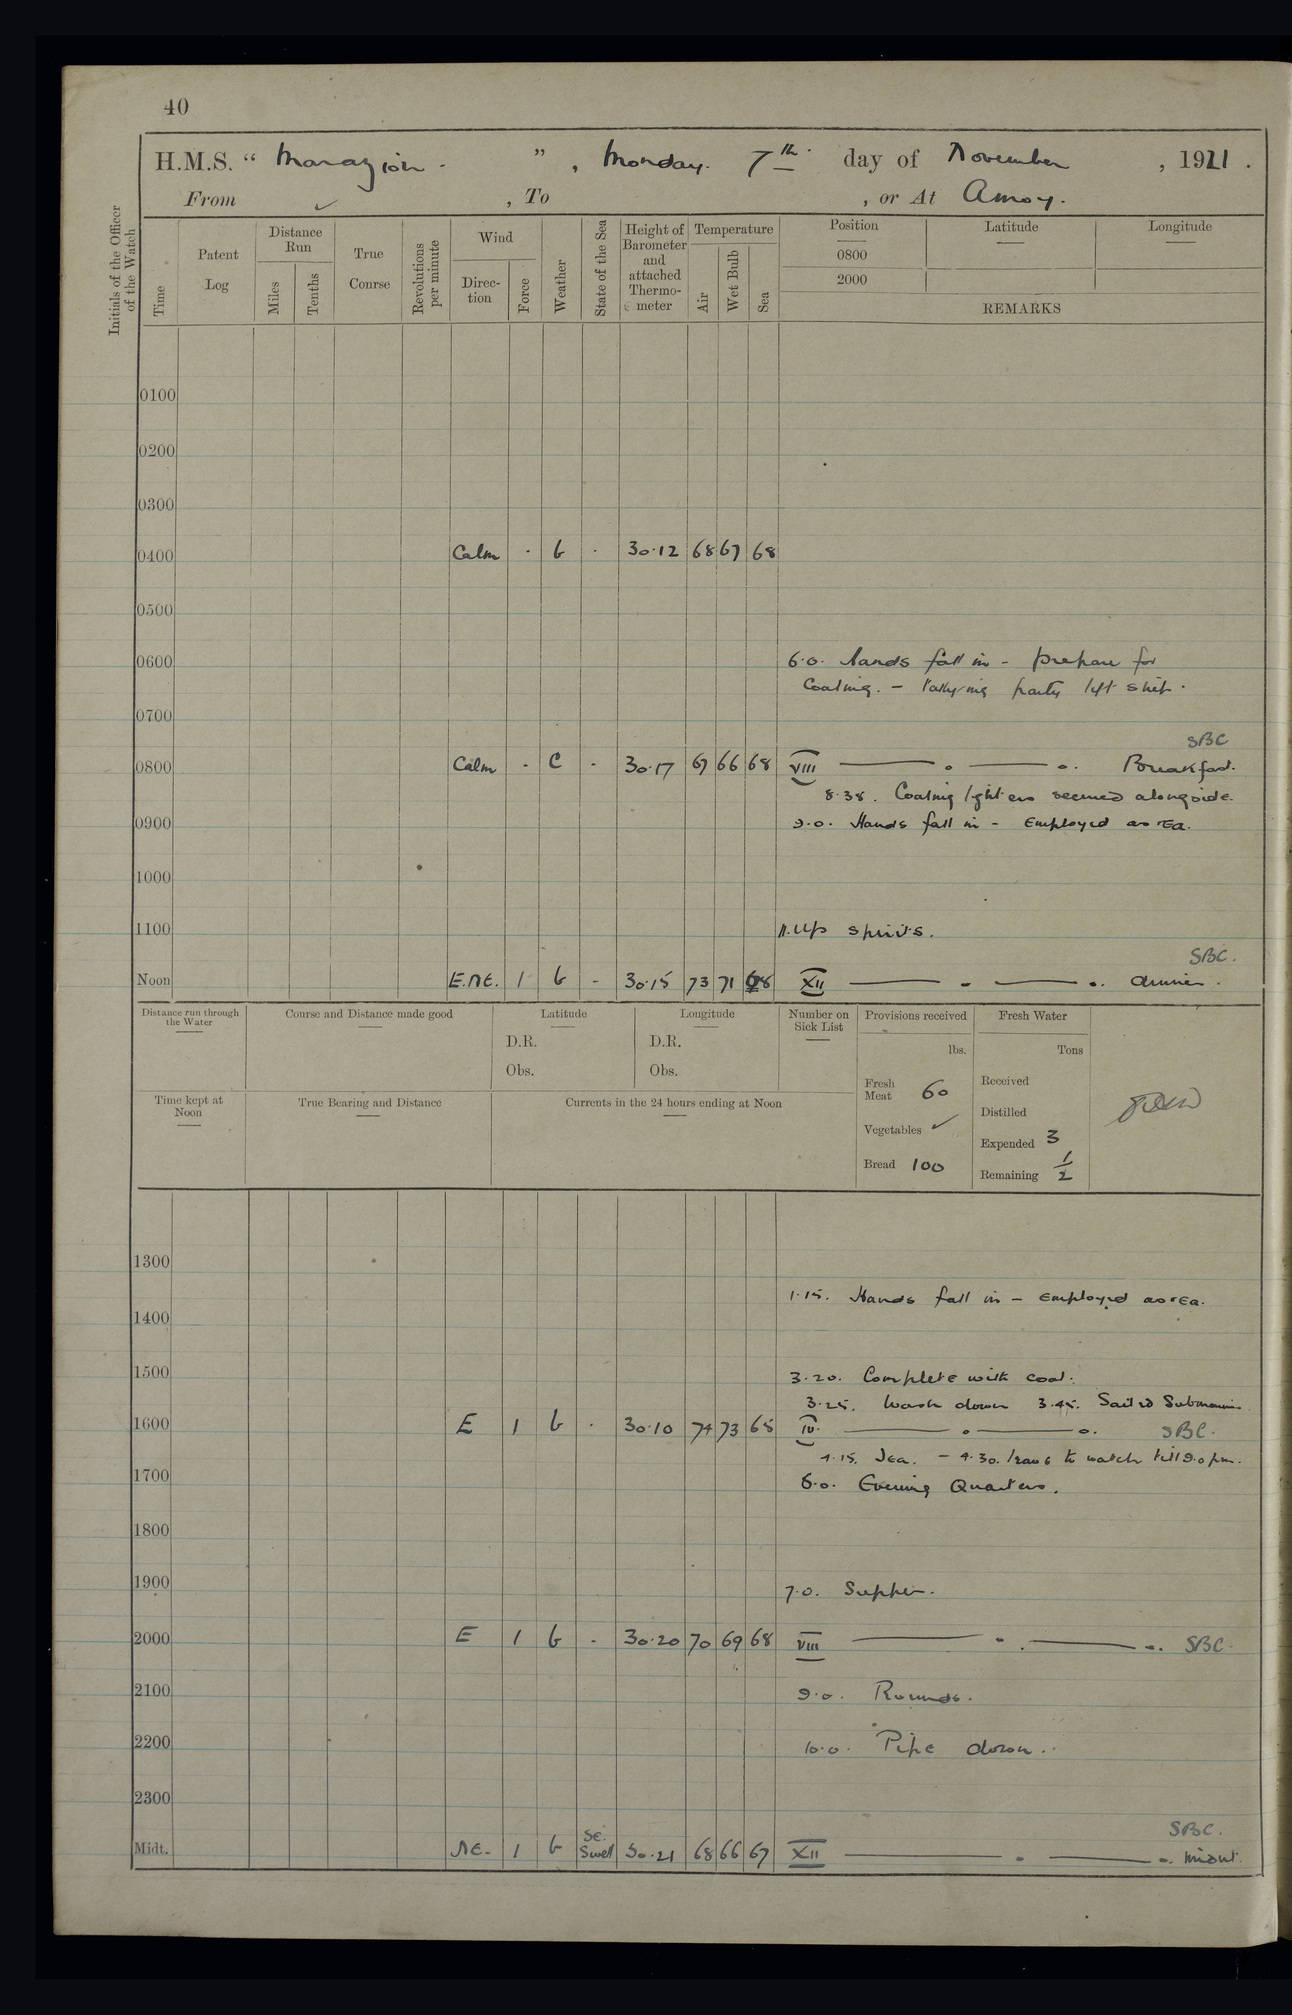 40
H.M.S. “ Marazion. ” , Monday. 7th. day of November , 1921 .
From ✓ , To , or At Amoy.
Initials of the Officer of the Watch
Time
Patent Log
Distance Run
Miles
Tenths
True Course
Revolutions per minute
Wind
Direc-tion
Force
Weather
State of the Sea
Height of Barometer and attached Thermo-meter
Temperature
Air
Wet Bulb
Sea
Position
Latitude
Longitude
0800
2000
REMARKS
0100
0200
0300
0400 Calm · b · 30·12 68 67 68
0500
0600 6·0. hands fall in - prepare for
coaling. - tallying party left ship.
0700
SBC
0800 Calm · C · 30·17 67 66 68 VIII Breakfast.
8·38. Coaling lighters secured alongside.
0900 9·0. Hands fall in - Employed as rEq.
1000
1100 11. Up spirits.
SBC.
Noon E.NE. 1 b - 30·15 73 71 68 XII dinner.
Distance run through the Water
Course and Distance made good
Latitude
D.R.
Obs.
Longitude
D.R.
Obs.
Number on Sick List
Provisions received
lbs.
Fresh Meat 60
Vegetables ✓
Bread 100
Fresh Water
Tons
Received
Distilled
Expended 3
Remaining 1/2
Time kept at Noon
True Bearing and Distance
Currents in the 24 hours ending at Noon
1300
1·15. Hands fall in - employed as rEq.
1400
1500 3·20. Complete with coal.
3·25. Wash down 3·45. Sailed
1600 E 1 b · 30·10 74 73 68 IV. SBC.
4·15. Tea. - 4·30. leave to watch till 9.0 pm.
1700 5·0. Evening Quarters.
1800
1900 7·0. Supper.
2000 E 1 b · 30·20 70 69 68 VIII SBC.
2100 9·0. Rounds.
2200 10·0. Pipe down.
2300
SBC.
Midt. NE. 1 b SE. Swell 30·21 68 66 67 XII midnt.